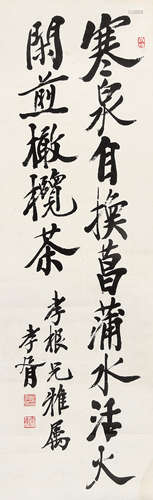 寒泉自換菖蒲水活火
閑煎橄欖茶
孝根兄雅属
孝胥